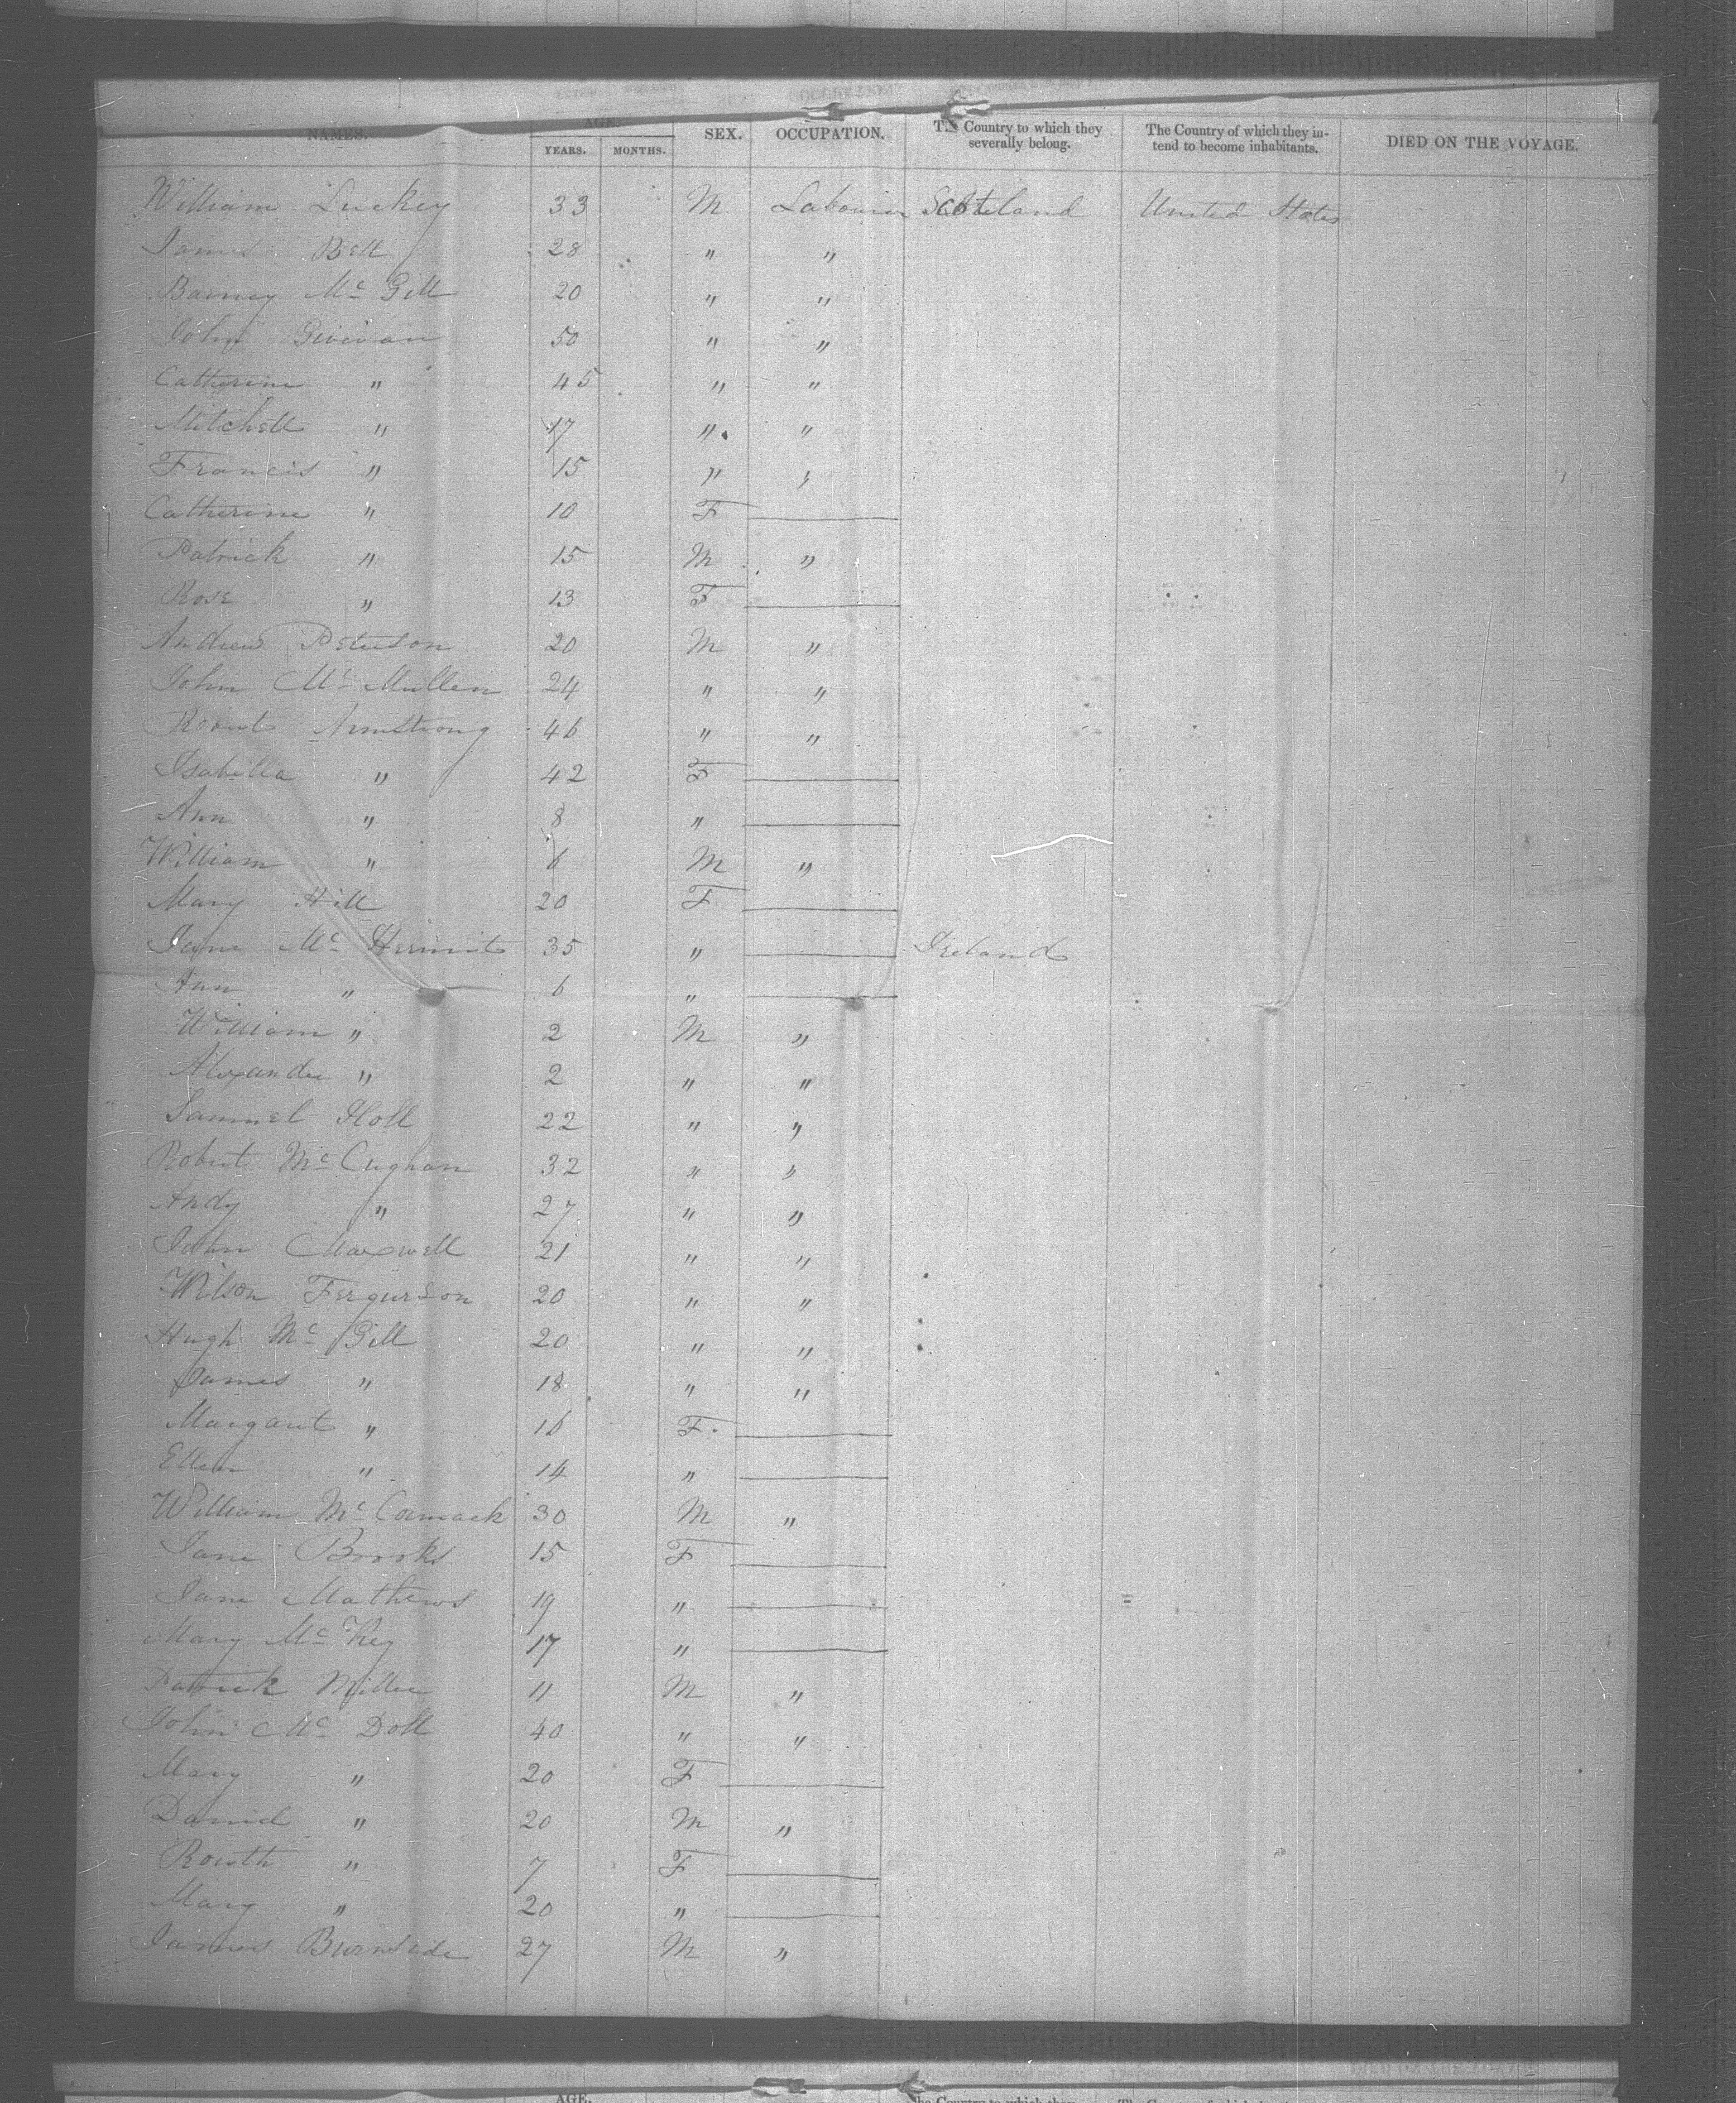 NAMES. AGE. YEARS. MONTHS. SEX. OCCUPATION. The Country to which they severally belong. The Country of which they intend to become inhabitants. DIED ON THE VOYAGE.
William Luckey 33 M Labourer Scotland United States
James Bell 28 " "
Barney Mc Gill 20 " "
John 50 " "
Catherine " 45 " "
Mitchell " 17 " "
Francis " 15 " "
Catherine " 10 F
Patrick " 15 M "
Rose " 13 F
Andrew Peterson 20 M "
John Mc Mullen 24 " "
Robert Armstrong 46 " "
Isabella " 42 F
Ann " 8 "
William " 6 M "
Mary Hill 20 F
Jane Mc 35 " Ireland
Ann " 6 "
William " 2 M "
Alexander " 2 " "
Samuel Holl 22 " "
Robert Mc Cughan 32 " "
Andy " 27 " "
John Maxwell 21 " "
Wilson Fergurson 20 " "
Hugh Mc Gill 20 " "
James " 18 " "
Margaret " 16 F
Ellen " 14 "
William Mc Cormack 30 M "
Jane Brooks 15 F
Jane Mathews 19 "
Mary Mc Key 17 "
Patrick Miller 11 M "
John Mc Doll 40 " "
Mary " 20 F
Daniel " 20 M "
" 7 F
Mary " 20 "
James Burnside 27 M "
AGE. The Country to which they